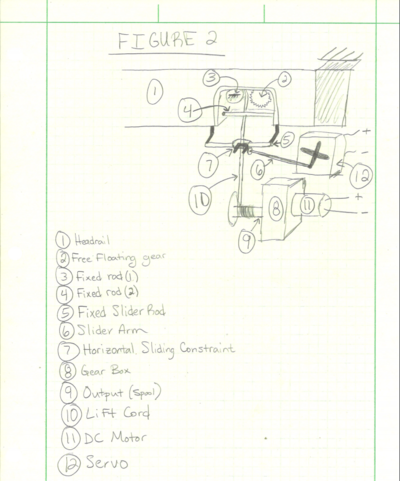 FIGURE 2
3 2
1
4
+
5
7 -
6 12
10 + 
8 11 -
9
1 Headrail
2 Free Floating gear
3 Fixed rod (1)
4 Fixed rod (2)
5 Fixed Slider Rod
6 Slider Arm
7 Horizontal Sliding Constraint
8 Gear Box
9 Output (Spool)
10 Lift Cord
11 DC Motor
12 Servo